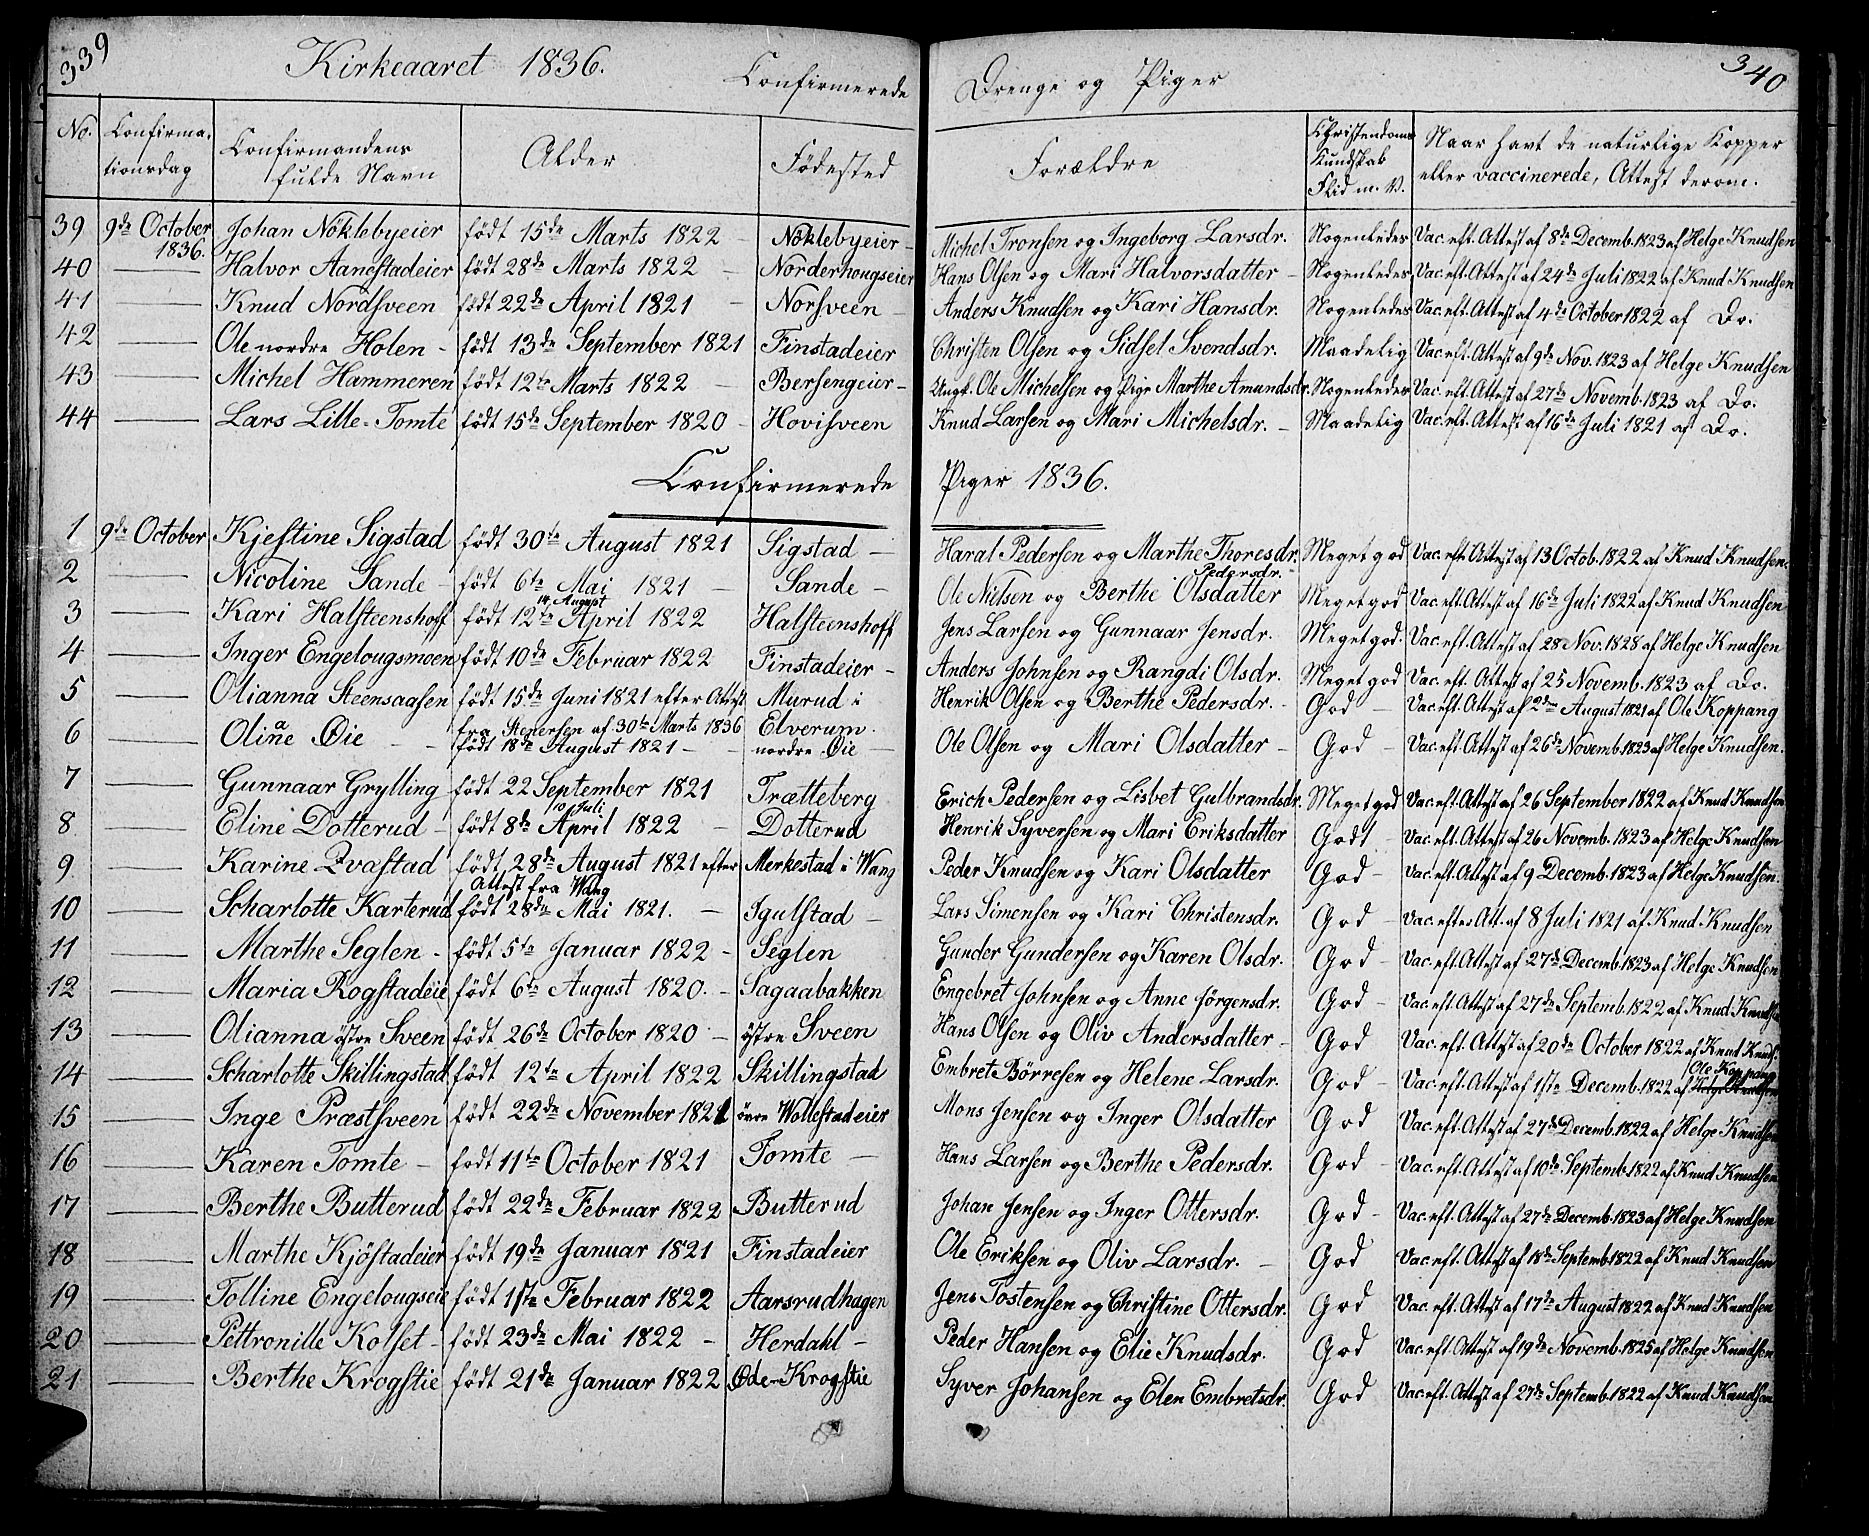 339
Kirkeaaret 1836.
Confirmerede Drenge og Piger
340
No. Confirmationsdag Confirmandens fulde Navn Alder Födested Forældre Christendoms Kundskab Flid m. V. Naar havt de naturlige Kopper eller vaccinerede, Attest derom.
39 9de October 1836. Johan Nöklebyeier födt 15de Marts 1822 – Nöklebyeier – Michel Tronsen og Ingeborg Larsdr. Nogenledes Vac. eft. Attest af 8de Decemb. 1823 af Helge Knudsen
40 — Halvor Aanestadeier födt 28de Marts 1822 – Norderhougseier Hans Olsen og Mari Halvorsdatter – Nogenledes Vac. eft. Attest af 24de Juli 1822 af Knud Knudsen
41 — Knud Nordsveen födt 22de April 1821 – Norsveen – Anders Knudsen og Kari Hansdr. Nogenledes Vac. eft. Attest af 4de October 1822 af Do.
42 — Ole nordre Holen – födt 13de September 1821 Finstadeier Christen Olsen og Sidsel Svendsdr. Maadelig Vac. eft. Attest af 9de Nov. 1823 af Helge Knudsen
43 — Michel Hammeren födt 12te Marts 1822 – Bersengeier – Ungk. Ole Michelsen og Pige Marthe Amundsdr. Nogenledes Vac. eft. Attest af 27de Novemb. 1823 af Do.
44 — Lars Lille-Tomte födt 15de September 1820 – Hovisveen Knud Larsen og Mari Michelsdr. – Maadelig Vac. eft. Attest af 16de Juli 1821 af Do.
Confirmerede Piger 1836.
1 9de October Kjestine Sigstad födt 30te August 1821 Sigstad – Haral Pedersen og Marthe Thoresdr. Meget god Vac. eft. Attest af 13 Octob. 1822 af Knud Knudsen.
2 — Nicoline Sande – födt 6te Mai 1821 – Sande – Ole Nilsen og Berthe Olsdatter Pedersdr. Meget god Vac. eft. Attest af 16de Juli 1822 af Knud Knudsen
3 — Kari Halsteenshoff födt 12te April 14 August 1822 Halsteenshoff Jens Larsen og Gunnaar Jensdr. Meget god. Vac. eft. Attest af 28 Nov. 1828 af Helge Knudsen
4 — Inger Engelougsmoen födt 10de Februar 1822 Finstadeier – Anders Johnsen og Rangdi Olsdr. Meget god Vac. eft. Attest af 25 Novemb. 1823 af Do.
5 — Olianna Steensaasen födt 15de Juni 1821 efter Attest fra Stenersen af 30te Marts 1836 Murud i Elverum. Henrik Olsen og Berthe Pedersdr. – God – Vac. eft. Attest af 2den August 1821 af Ole Koppang
6 — Olinea Øie – födt 18de August 1821 – nordre Øie – Ole Olsen og Mari Olsdatter – God – Vac. eft. Attest af 26de Novemb. 1823 af Helge Knudsen.
7 — Gunnaar Grylling födt 22 September 1821 Trætteberg Erich Pedersen og Lisbet Gulbrandsdr. Meget god Vac. eft. Attest af 26 September 1822 af Knud Knudsen
8 — Eline Dotterud – födt 8de April 10 Juli 1822 – Dotterud Henrik Syversen og Mari Eriksdatter Godt – Vac. eft. Attest af 26 Novemb. 1823 af Helge Knudsen
9 — Karine Qvastad födt 28de August 1821 efter Attest fra Wang Merkestad i Wang Peder Knudsen og Kari Olsdatter God – Vac. eft. Attest af 9 Decemb. 1823 af Helge Knudsen.
10 — Scharlotte Karterud födt 28de Mai 1821. – Igulstad – Lars Simensen og Kari Christensdr. God – Vac. eftes Att. af 8 Juli 1821 af Knud Knudsen
11 — Marthe Seglen – födt 5te Januar 1822 – Seglen Gunder Gundersen og Karen Olsdr. God – Vac. eft. Attest af 27de Decemb. 1823 af Helge Knudsen
12 — Maria Rogstadeie födt 6te August 1820. – Sagaabakken Engebret Johnsen og Anne Jörgensdr. God – Vac. eft. Attest af 27de Septemb. 1822 af Knud Knudse
13 — Olianna östre Sveen födt 26de October 1820 – östre Sveen Hans Olsen og Oliv Andersdatter – God Vac. eft. Attest af 20de October 1822 af Knud Knuds.
14 — Scharlotte Skillingstad födt 12te April 1822 Skillingstad Embret Börresen og Helene Larsdr. God – Vac. eft. Attest af 1ste Decemb. 1822 af Helge Knudsen Ole Koppang
15 — Inge Præstsveen födt 22de November 1821 övre Wollestadeier Mons Jensen og Inger Olsdatter God Vac. eft. Attest af 27de Decemb. 1822 af Helge Knudsen
16 — Karen Tomte – födt 11te October 1821 Tomte – Hans Larsen og Berthe Pedersdr. God – Vac. eft. Attest af 10de Septemb. 1822 af Knud Knudsen
17 — Berthe Butterud födt 22de Februar 1822 Butterud Johan Jensen og Inger Ottersdr. God – Vac. eft. Attest af 27de Decemb. 1823 af Helge Knudsen
18 — Marthe Kjöstadeier födt 19de Januar 1821 Finstadeier Ole Eriksen og Oliv Larsdr. – God Vac. eft. Attest af 18de Septemb. 1822 af Knud Knudsen
19 — Tolline Engelougseie födt 1ste Februar 1822 Aarsrudhagen Jens Tostensen og Christine Ottersdr. God Vac. eft. Attest af 17de August 1822 af Knud Knudsen
20 — Pettronille Kolset – födt 23de Mai 1822 – Herdahl – Peder Hansen og Elie Knudsdr. God Vac. eft. Attest af 19de Novemb. 1825 af Helge Knudsen
21 — Berthe Krogstie födt 21de Januar 1822 Øde-Krogstie Syver Johansen og Elen Embretsdr. God Vac. eft. Attest af 27de Septemb. 1822 af Knud Knudsen